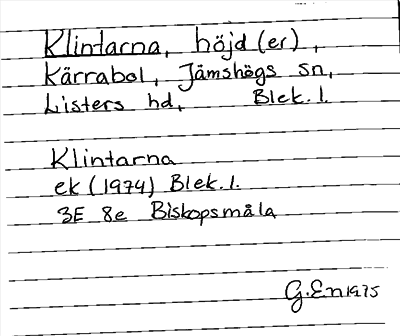 Klintarna, höjd (er),
Kärrabol, Jämshögs sn,
Listers hd, Blek. l.
Klintarna
ek (1974) Blek. l.
3E 8e Biskopsmåla
G. En 1975